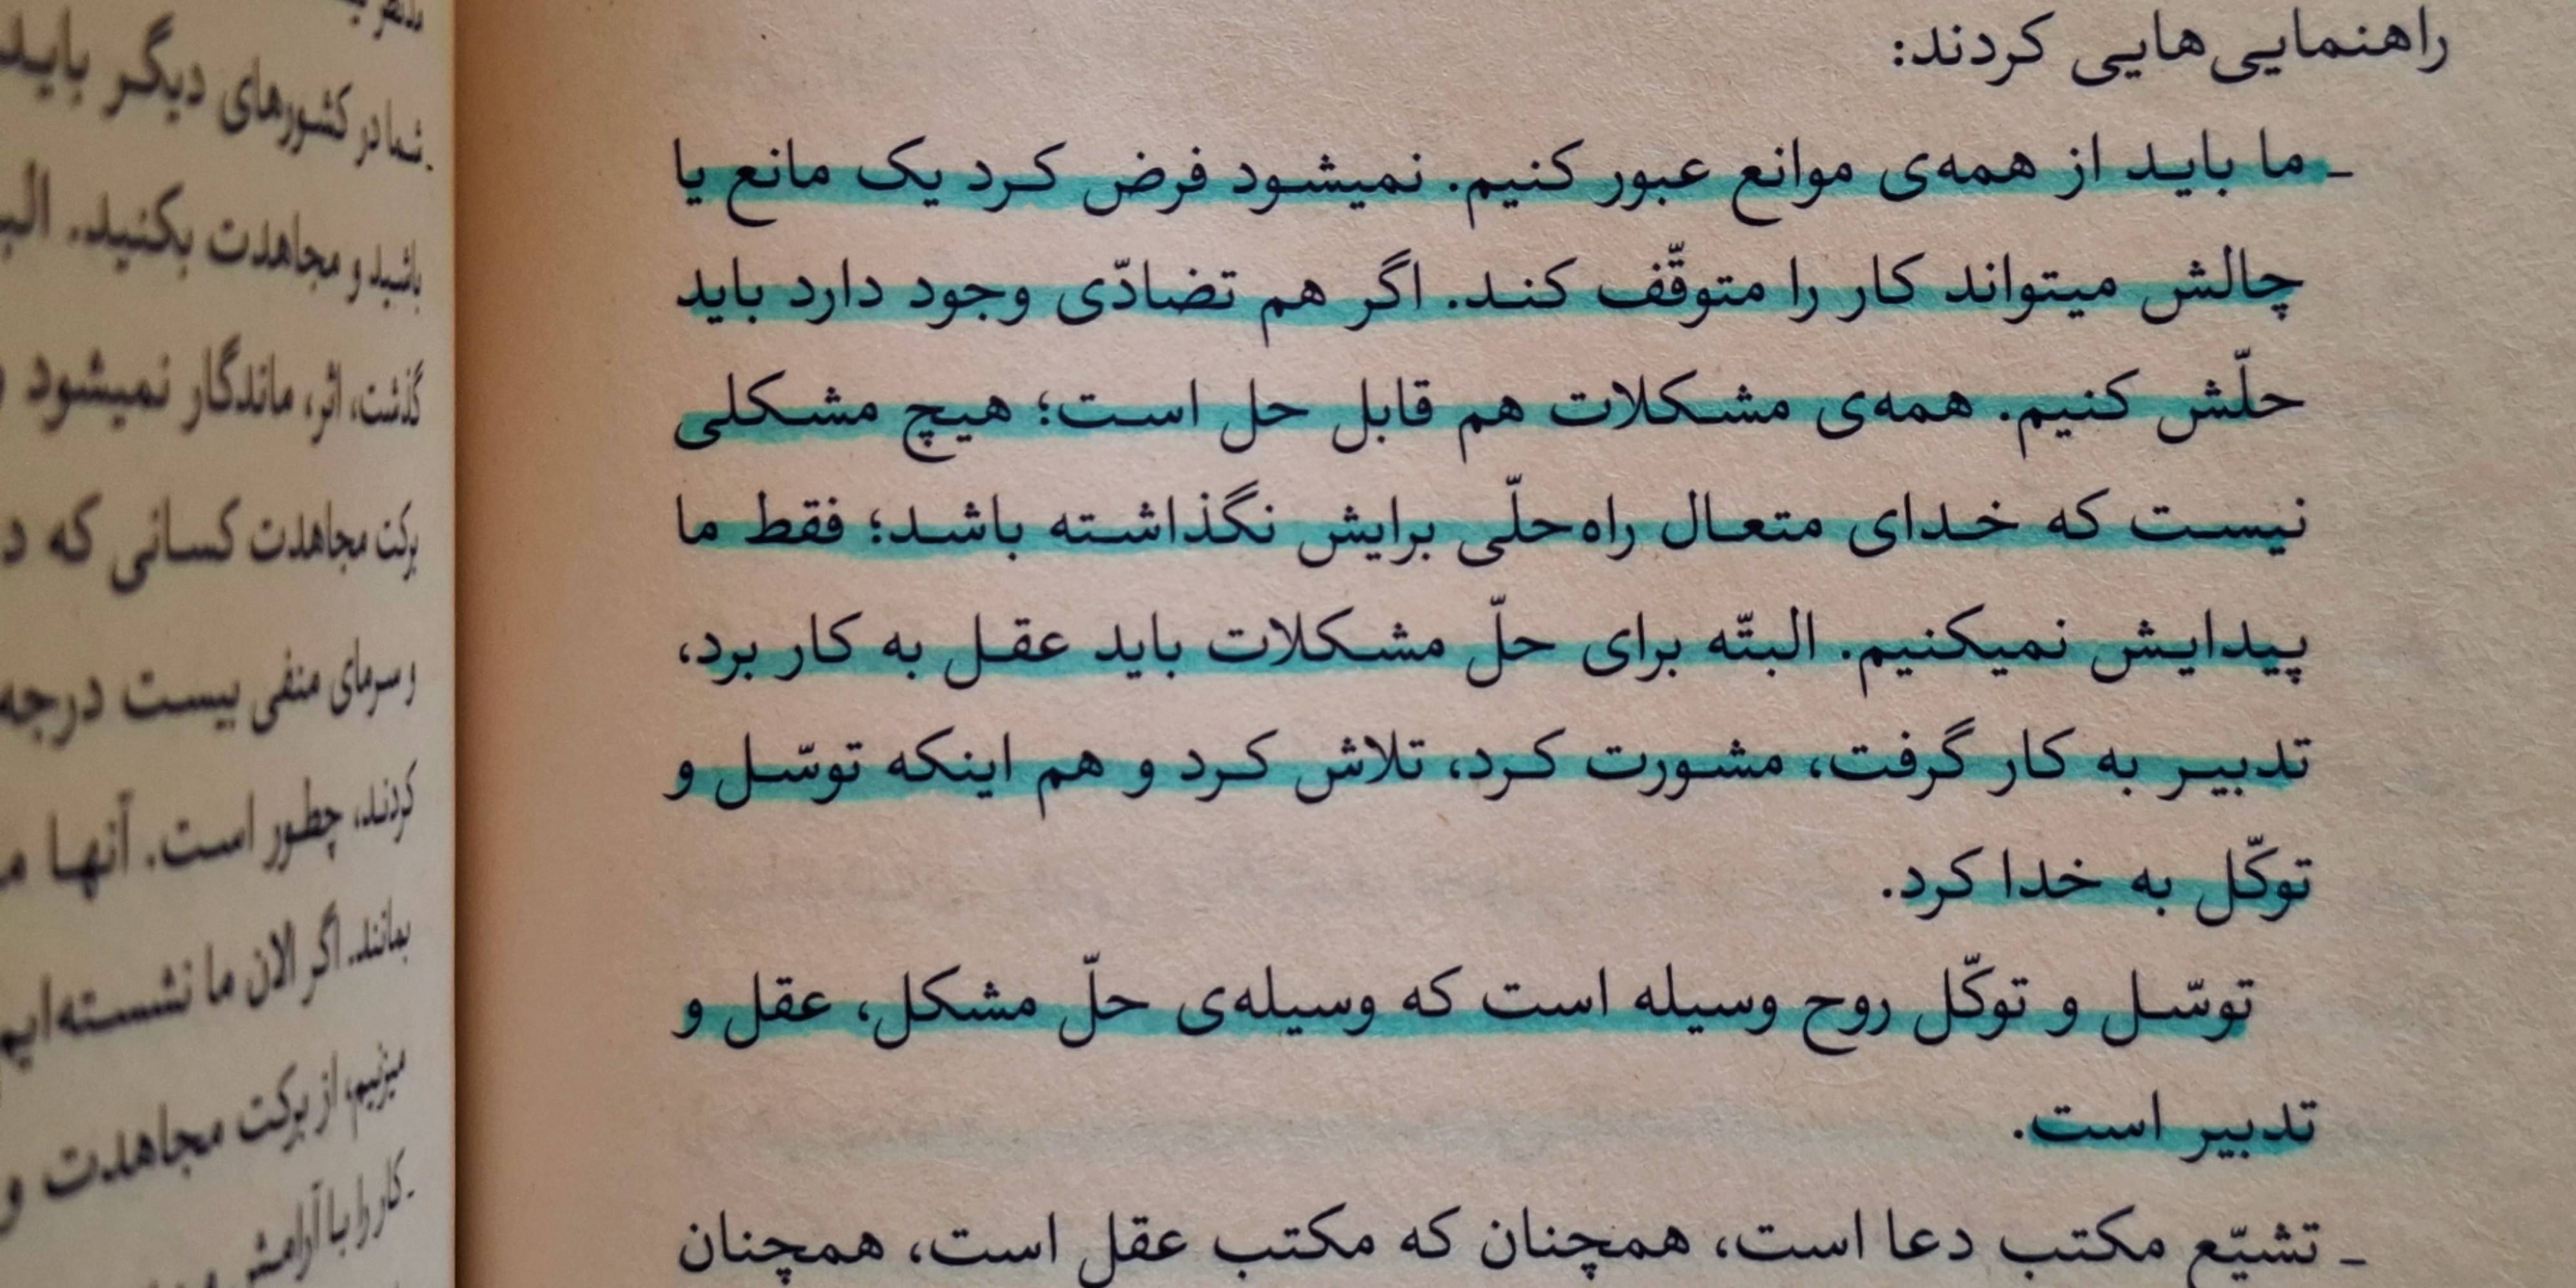 راهنمایی‌هایی کردند:
ـ ما باید از همه‌ی موانع عبور کنیم. نمیشود فرض کرد یک مانع یا
چالش میتواند کار را متوقّف کند. اگر هم تضادّی وجود دارد باید
حلّش کنیم. همه‌ی مشکلات هم قابل حل است؛ هیچ مشکلی
نیست که خدای متعال راه‌حلّی برایش نگذاشته باشد؛ فقط ما
پیدایش نمیکنیم. البتّه برای حلّ مشکلات باید عقل به کار برد،
تدبیر به کار گرفت، مشورت کرد، تلاش کرد و هم اینکه توسّل و
توکّل به خدا کرد.
توسّل و توکّل روح وسیله است که وسیله‌ی حلّ مشکل، عقل و
تدبیر است.
ـ تشیّع مکتب دعا است، همچنان که مکتب عقل است، همچنان
ـ شما در کشورهای دیگر باید
باشید و مجاهدت بکنید.
گذشت، اثر، ماندگار نمیشود و
برکت مجاهدت کسانی که
و سرمای منفی بیست درجه
کردند، چطور است. آنها
بمانند. اگر الان ما نشسته‌ایم
میزنیم، از برکت مجاهدت و
ـ کار را با آرامش